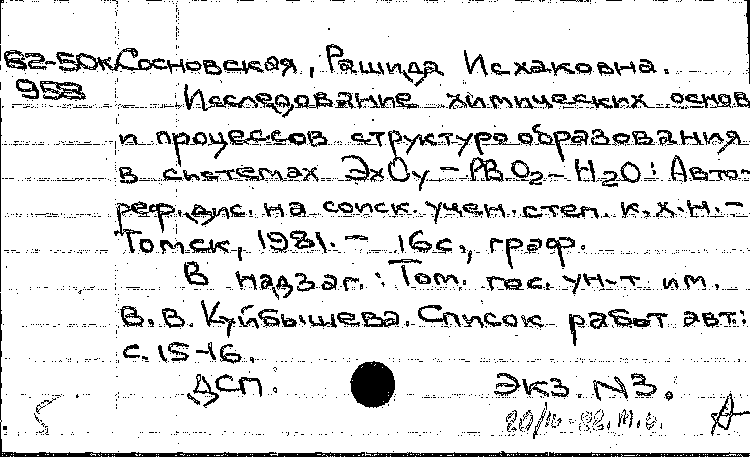 62-50к Сосновская, Рашида Исхаковна.
958 Исследование химических основ
и процессов структурообразования
в системах ЭxОy – PBO2 – H2O : Авто-
реф. дис. на соиск. учен. степ. к.х.н. –
Томск, 1981. – 16с., граф.
В надзаг.: Том. гос. ун-т им.
В.В. Куйбышева. Список работ авт.:
с. 15-16.
ДСП. Экз. N3.
20/IV-82. м.
А